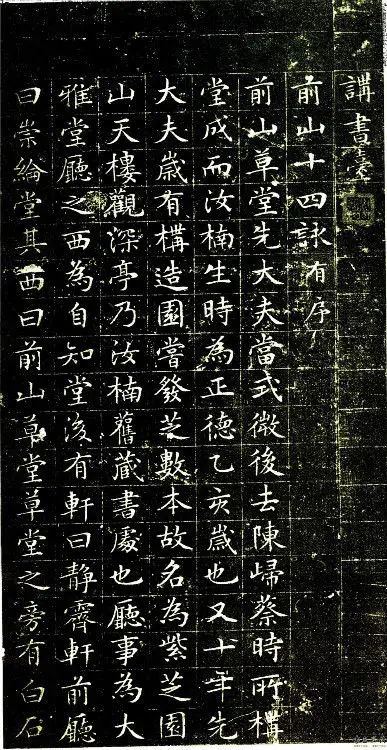 講書臺
前山十四詠有序
前山草堂先大夫當式微後去陳歸蔡時所構
堂成而汝楠生時為正德乙亥歲也又十年先
大夫歲有構造園嘗發芝數本故名為紫芝園
山天樓觀深亭乃汝楠舊藏書處也廳事為大
雅堂廳之西為自知堂後有軒曰静霽軒前廳
曰崇綸堂其西曰前山草堂草堂之旁有白石